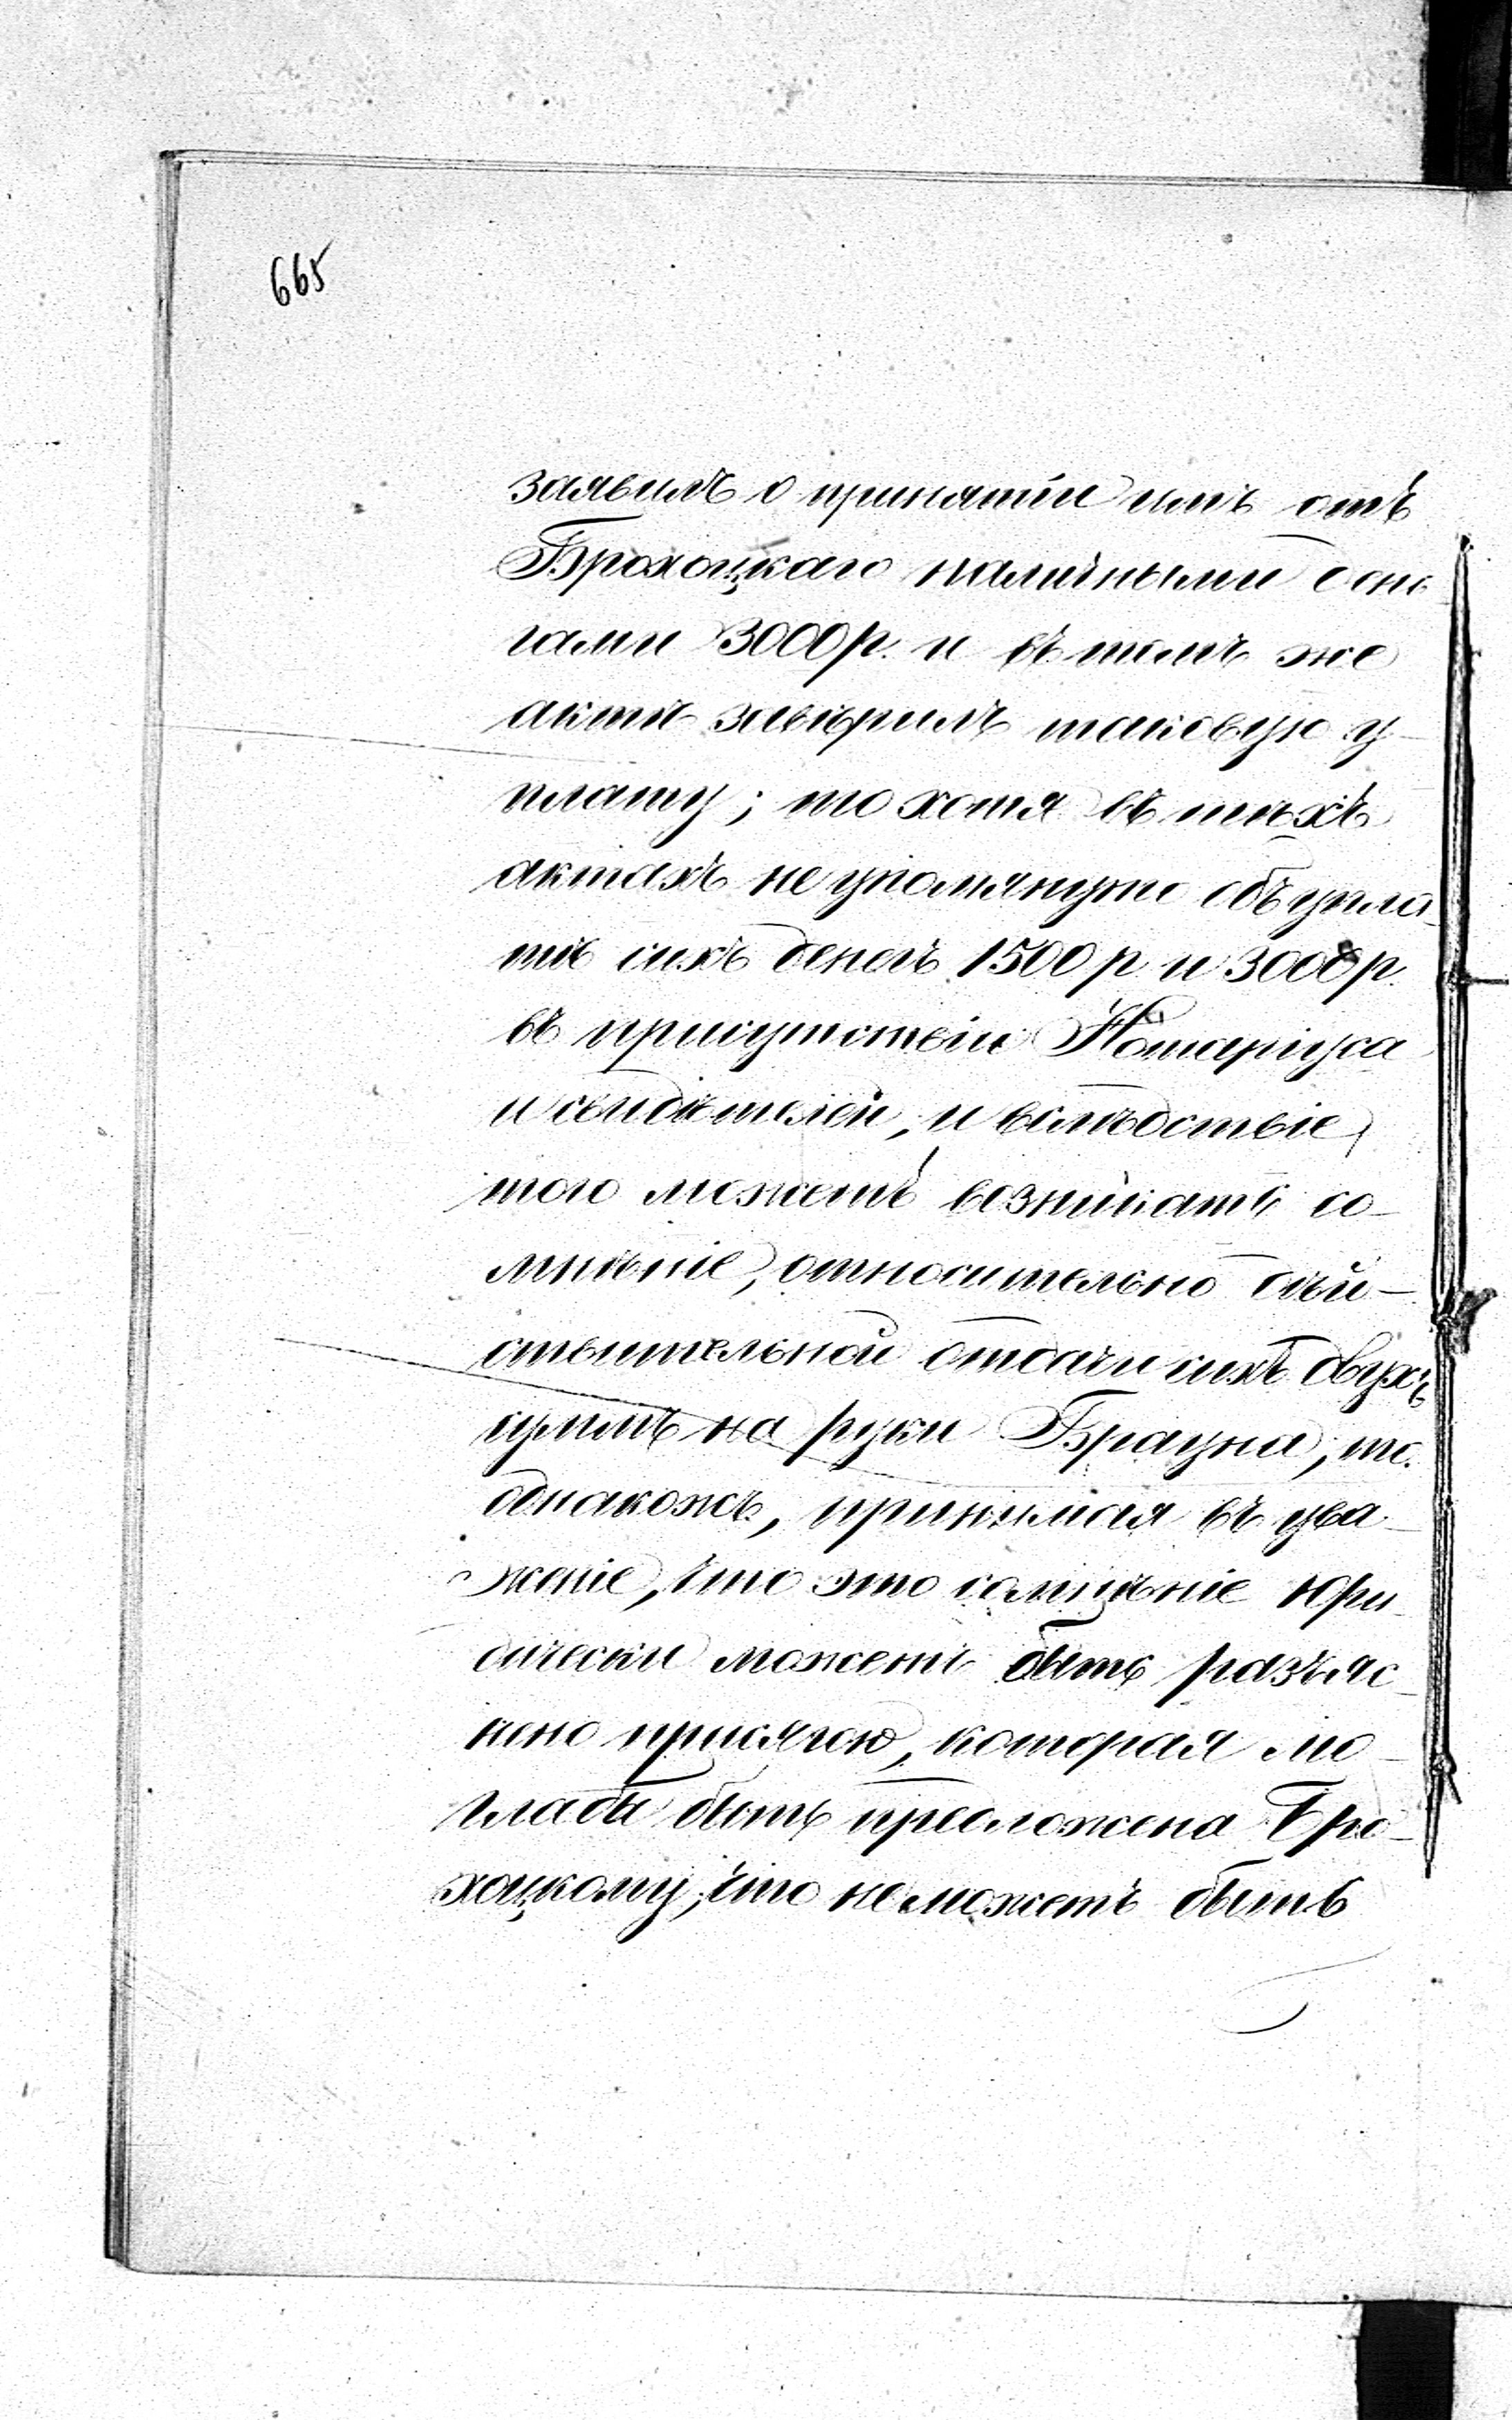 665
заявилъ о принятіи имъ отъ
Брохоцкаго наличными день
гами 3000 р. и въ томъ же
актѣ завѣрилъ таковую у-
плату; то хотя въ тѣхъ
актахъ не упомянуто объ упла-
тѣ сихъ денегъ 1500 р и 3000 р.
въ присутствіи Нотаріуса
и свидѣтелей, и вслѣдствіе
того можетъ возникать со-
мнѣніе, относительно дѣй-
ствительной отдачи сихъ двухъ
суммъ на руки Брауна, то
однакожъ, принимая въ ува-
женіе, что это сомнѣніе юри-
дически можетъ быть разъяс-
нено присягою, которая мо-
глабы быть предложена Бро-
хоцкому, что не можетъ быть